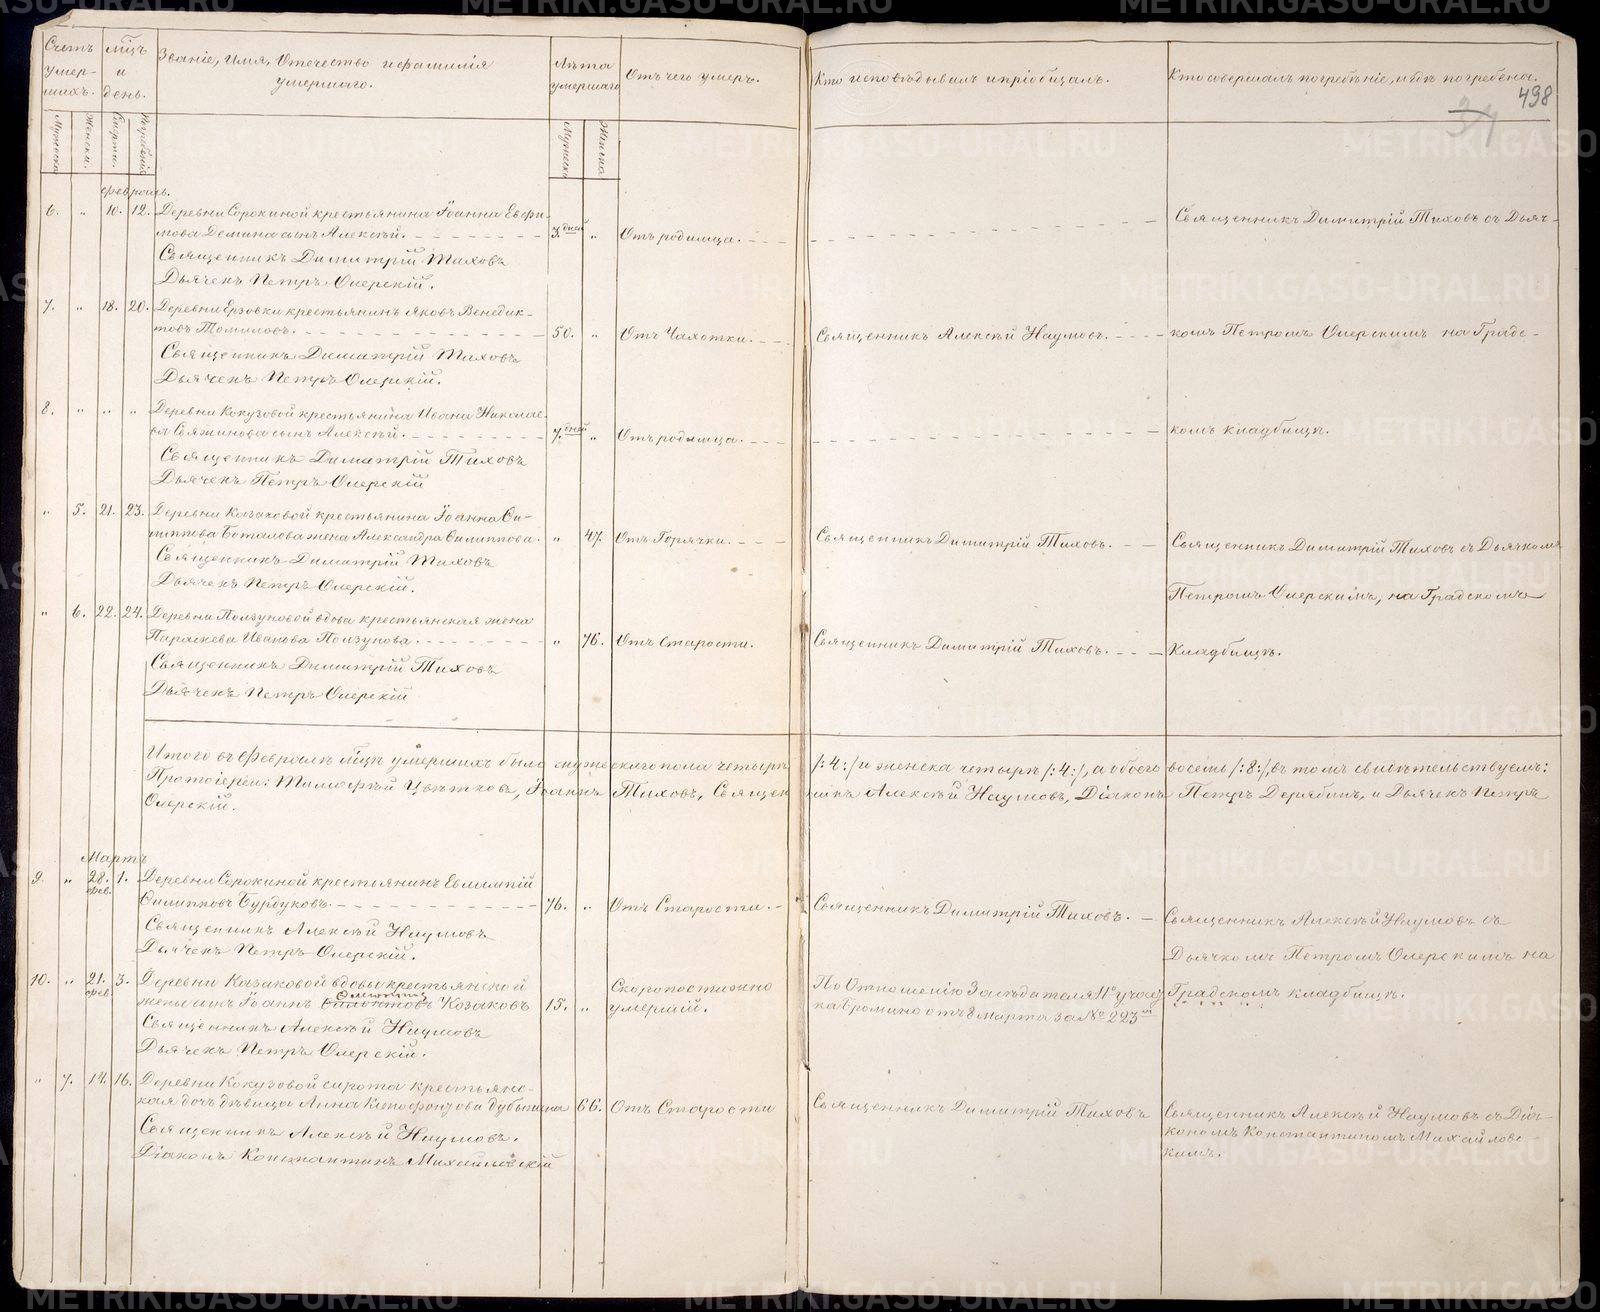 Счетъ умер-шихъ.
Мѣсяцъ и день.
Званіе, Имя, Отечество и фамилія умершаго.
Лѣта умершаго
Отъ чего умеръ.
Кто исповѣдывалъ и пріобщалъ.
Кто совершалъ погребеніе, и гдѣ погребены.
498
31
Мужеска
Женска.
Смерти.
Погребенія
Мужеска
Женска
Февраль.
6. „ 10. 12. Деревни Сорокиной крестьянина Іоанна Евфи-
мова Демина сынъ Алексѣй. 3. дней „ Отъ родимца. Священникъ Димитрій Тиховъ съ Дьяч-
Священникъ Димитрій Тиховъ
Дьячекъ Петръ Озерскій.
7. „ 18. 20. Деревни Ерзовки крестьянинъ Яковъ Венедик-
товъ Томиловъ. 50. „ Отъ Чахотки. Священникъ Алексѣй Наумовъ. комъ Петромъ Озерскимъ на Градс-
Священникъ Димитрій Тиховъ
Дьячекъ Петръ Озерскій.
8. „ „ „ Деревни Кокузовой крестьянина Ивана Николае-
ва сынъ Алексѣй. 7. дней „ Отъ родимца. комъ кладбищѣ.
Священникъ Димитрій Тиховъ
Дьячекъ Петръ Озерскій
„ 5. 21. 23. Деревни Казаковой крестьянина Іоанна Фи-
липпова Боталова жена Александра Филиппова. „ 47. Отъ Горячки. Священникъ Димитрій Тиховъ. Священникъ Димитрій Тиховъ съ Дьячкомъ
Священникъ Димитрій Тиховъ
Дьячекъ Петръ Озерскій.
Петромъ Озерскимъ, на Градскомъ
„ 6. 22. 24. Деревни Ползуновой вдова крестьянская жена
Параскева Иванова Ползунова. „ 76. Отъ Старости. Священникъ Димитрій Тиховъ. Кладбищѣ.
Священникъ Димитрій Тиховъ
Дьячекъ Петръ Озерскій
Итого въ Февралѣ мѣсяцѣ умершихъ было мужескаго пола четыре /:4:/ и женска четыре /:4:/, а обоего восемь /:8:/, въ томъ свидѣтельствуемъ:
Протоіереи: Тимофѣй Цвѣтковъ, Іоаннъ Тиховъ, Священникъ Алексѣй Наумовъ, Діаконъ Петръ Дерябинъ, и Дьячекъ Петръ
Озерскій.
Мартъ
9. „ 28. фев. 1. Деревни Сорокиной крестьянинъ Евлампій
Филипповъ Бурдуковъ. 76. „ Отъ Старости. Священникъ Димитрій Тиховъ. Священникъ Алексѣй Наумовъ съ
Священникъ Алексѣй Наумовъ
Дьячекъ Петръ Озерскій.
Дьячкомъ Петромъ Озерскимъ на
10. „ 21. фев. 3. Деревни Казаковой вдовы крестьянской
жены сынъ Іоаннъ Козаковъ 15. „ Скоропостижно умершій. По Отношенію Засѣдателя 11го участ-
ка Еромино отъ 8 Марта за № 223м Градскомъ кладбищѣ.
Священникъ Алексѣй Наумовъ
Дьячекъ Петръ Озерскій.
„ 7. 14. 16. Деревни Кокузовой сирота крестьянс-
кая дочь дѣвица Анна Ксенофонтова Дубынина 66. Отъ Старости Священникъ Димитрій Тиховъ Священникъ Алексѣй Наумовъ съ Діа-
кономъ Константиномъ Михайловс-
кимъ.
Священникъ Алексѣй Наумовъ.
Діаконъ Константинъ Михайловскій
METRIKI.GASO-URAL.RU